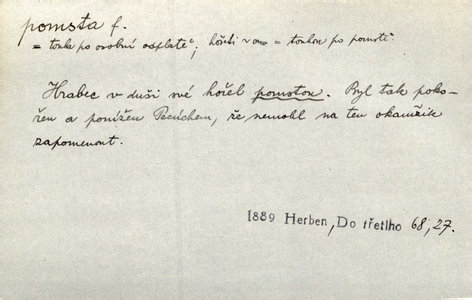 pomsta f.
= touha po osobní odplatě; hořeti v ~ = touhou po pomstě.
Hrabec v duši své hořel pomstou. Byl tak poko-
řen a ponížen Pecúchem, že nemohl na ten okamžik
zapomenout.
1889 Herben, Do třetího 68, 27.